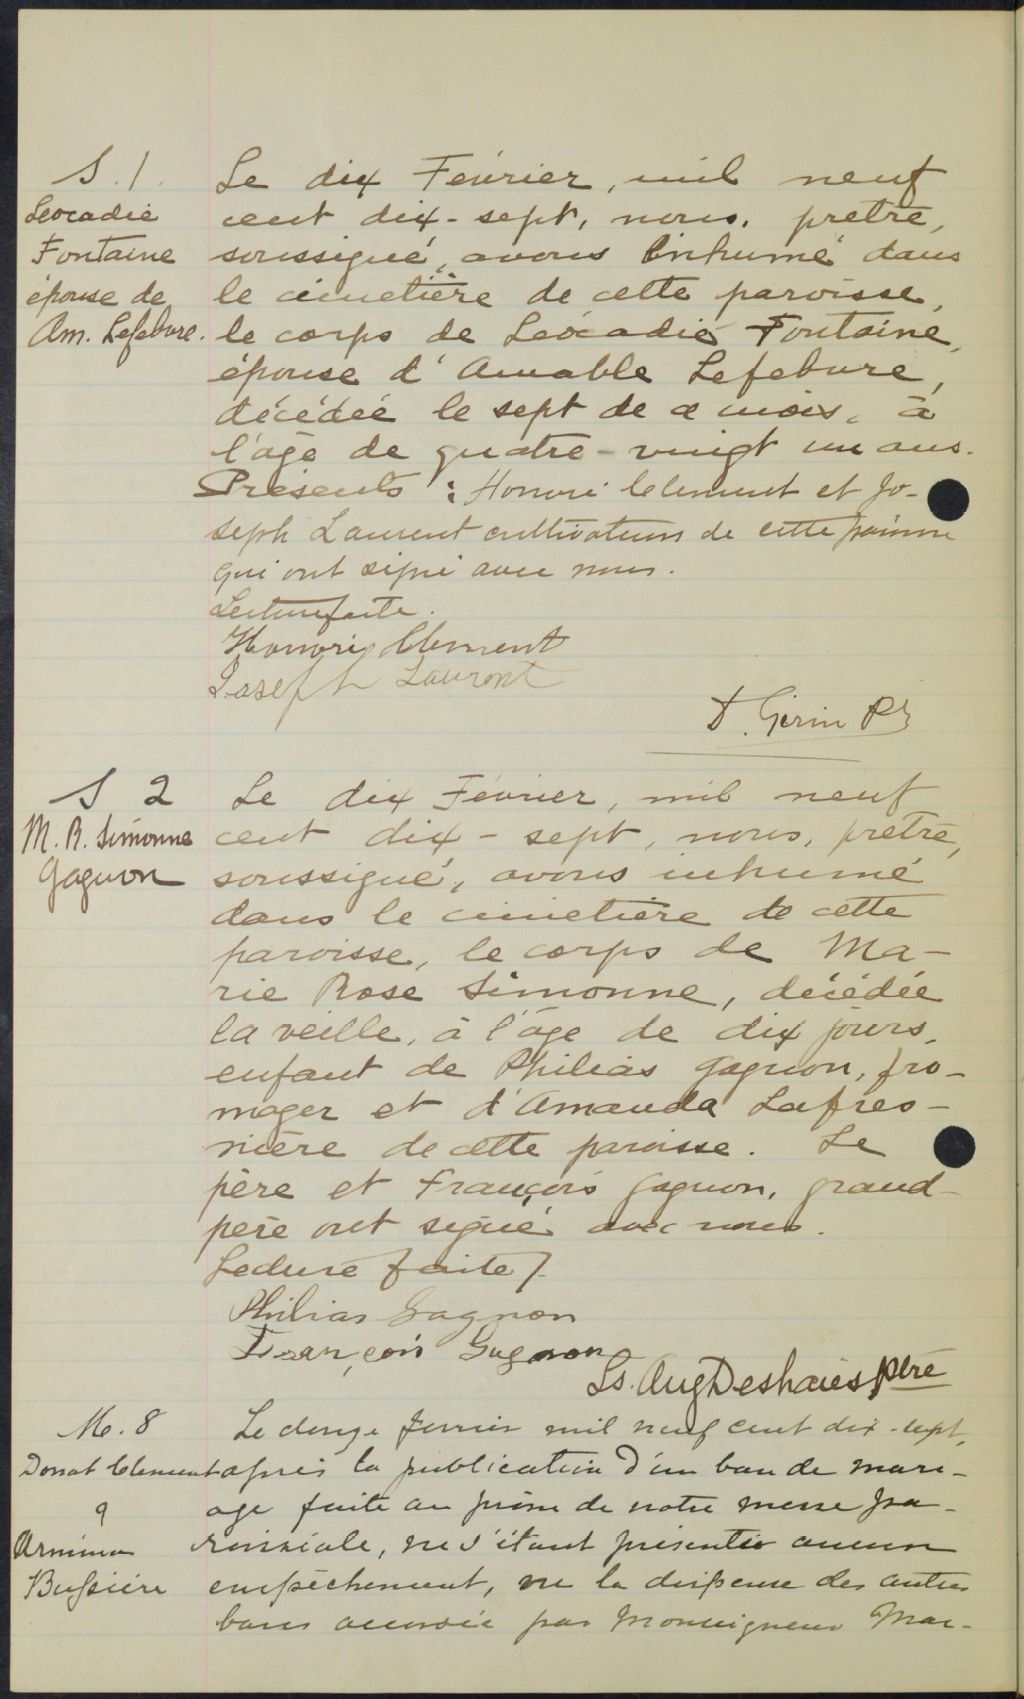 S. 1.
Léocadie
Fontaine
épouse de
Am. Lefebvre.
Le dix Février, mil neuf
cent dix-sept, nous, prêtre,
soussigné, avons inhumé dans
le cimetière de cette paroisse,
le corps de Léocadie Fontaine,
épouse d'Amable Lefebvre,
décédée le sept de ce mois, à
l'âge de quatre-vingt un ans.
Présents : Honoré Clément et Jo-
seph Laurent cultivateurs de cette paroisse
qui ont signé avec nous.
Lecture faite.
Honoré Clement
Joseph Lauront
D. Gérin Ptr
S 2
M. R. Simonne
Gagnon
Le dix Février, mil neuf
cent dix-sept, nous, prêtre,
soussigné, avons inhumé
dans le cimetière de cette
paroisse, le corps de Ma-
rie Rose Simonne, décédée
la veille, à l'âge de dix jours,
enfant de Philias Gagnon, fro-
mager et d'Amanda Lafres-
nière de cette paroisse. Le
père et François Gagnon, grand-
père ont signé avec nous.
Lecture faite /.
Philias Gagnon
François Gagnon
Ls. Aug Deshaies ptre
M. 8
Donat Clement
&
Armina
Bussière
Le douze février mil neuf cent dix-sept,
après la publication d'un ban de mari-
age faite au prône de notre messe pa-
roissiale, ne s'étant présenté aucun
empêchement, vu la dispense des autres
bans accordée par Monseigneur Mar-